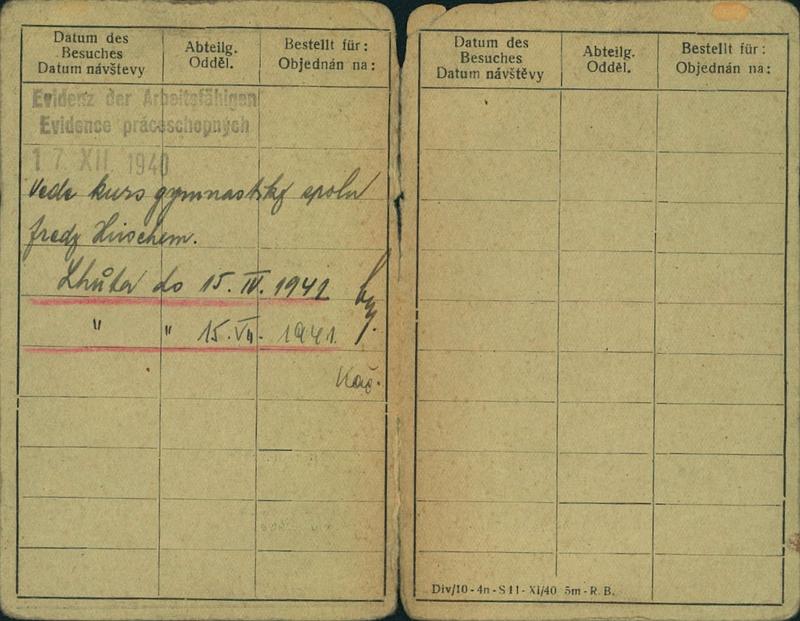 Datum des
Besuches
Datum návštevy
Abteilg.
Odděl.
Bestellt für:
Objednán na:
Evidenz der Arbeitsfähigen
Evidence práceschopných
17 XII 1940
Vede kurs gymnastiky spolu
fredy Hirschem.
Lhůta do 15. IV. 1941
" " 15. VII. 1941.
Datum des
Besuches
Datum návštěvy
Abteilg.
Odděl.
Bestellt für:
Objednán na:
Div/10 - 4n - S 11 - XI/40 5m - R. B.